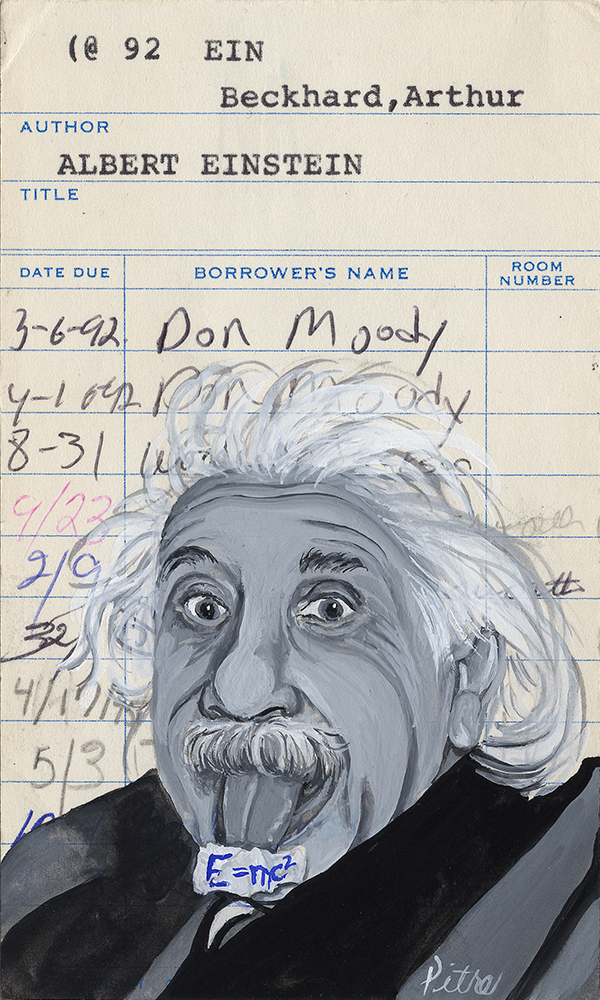 (@ 92 EIN
Beckhard,Arthur
AUTHOR
ALBERT EINSTEIN
TITLE
DATE DUE BORROWER'S NAME ROOM NUMBER
3-6-92 Don Moody
4-1 Don Moody
8-31
9/23
2/9
32
4/17
5/3
E=mc²
Pitra